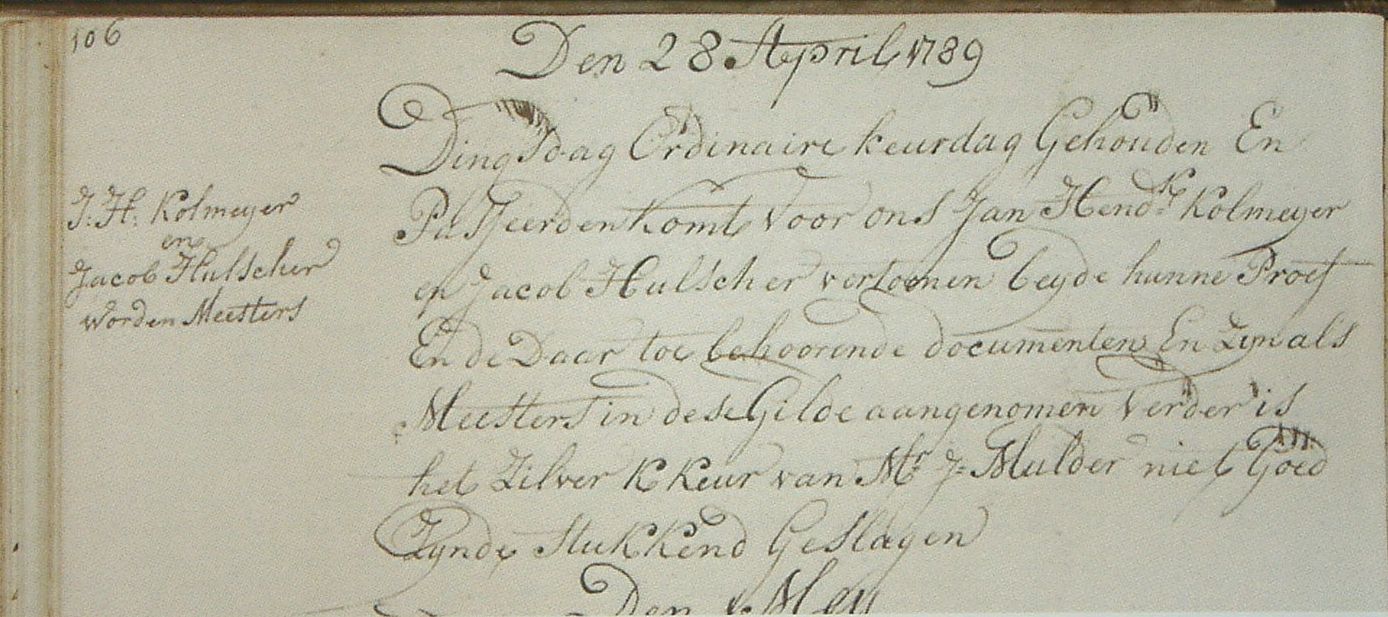 106
Den 28 April 1789
Dingsdag Ordinaire keurdag Gehouden En
Passeerden komt voor ons Jan Hendk Kolmeyer
en Jacob Hulscher vertoonen beyde hunne Proef
En de Daar toe behoorende documenten En Zyn als
Meesters in dese Gilde aangenomen Verder is
het Zilver K Keur van Mr J= Mulder niet Goed
Zynde Stukkend Geslagen
J: H: Kolmeyer
en
Jacob Hulscher
worden Meesters
Den Mey